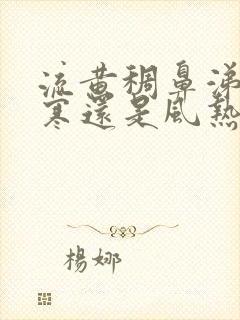 流黃稠鼻涕
寒還是風熱
楊娜